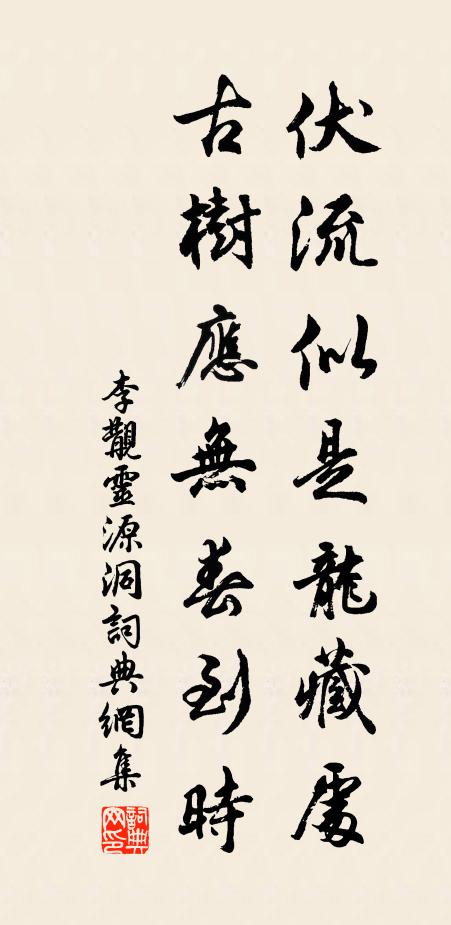 伏流似是龍藏處
古樹應無春到時
李觀靈源洞詞典網集
詞典網印